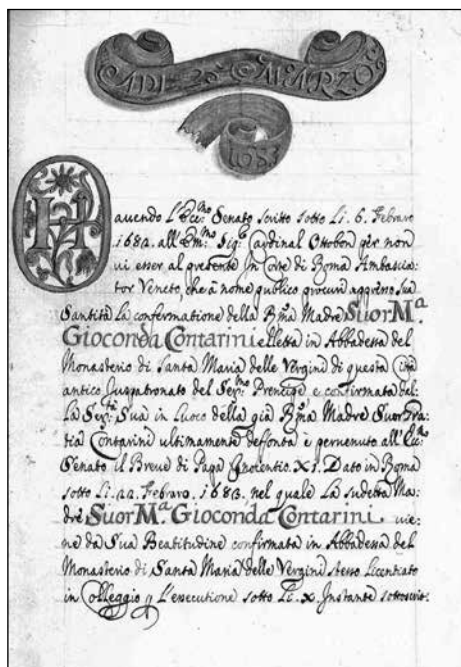 ADI 25 MARZO
1683
Hauendo l'Ecc.mo Senato scritto sotto li. 6. Febraro
1682. all'Em.mo Sig.r Cardinal Ottobon per non
ui esser al presente in Corte di Roma Ambascia:
tor Veneto, che à nome publico procuri appresso sua
Santità la confermatione della R.ma Madre Suor M.a
Gioconda Contarini elletta in Abbadessa del
Monasterio di Santa Maria delle Vergini di questa Città
antico Juspatronato del Ser.mo Prencipe e confirmata dal:
la Ser.tà Sua in luoco della già R.ma Madre Suor Gra:
tia Contarini ultimamente deffonta è peruenuto all'Ecc.mo
Senato il Breue di Papa Inocentio. XI. Dato in Roma
sotto li. 22. Febraro. 1683, nel quale la sudetta Ma:
dre Suor M.a Gioconda Contarini uie:
ne da Sua Beatitudine confirmata in Abbadessa del
Monasterio di Santa Maria delle Vergini stesso licentiato
in Colleggio p l'essecutione sotto li. X. Instante sottoscrit.